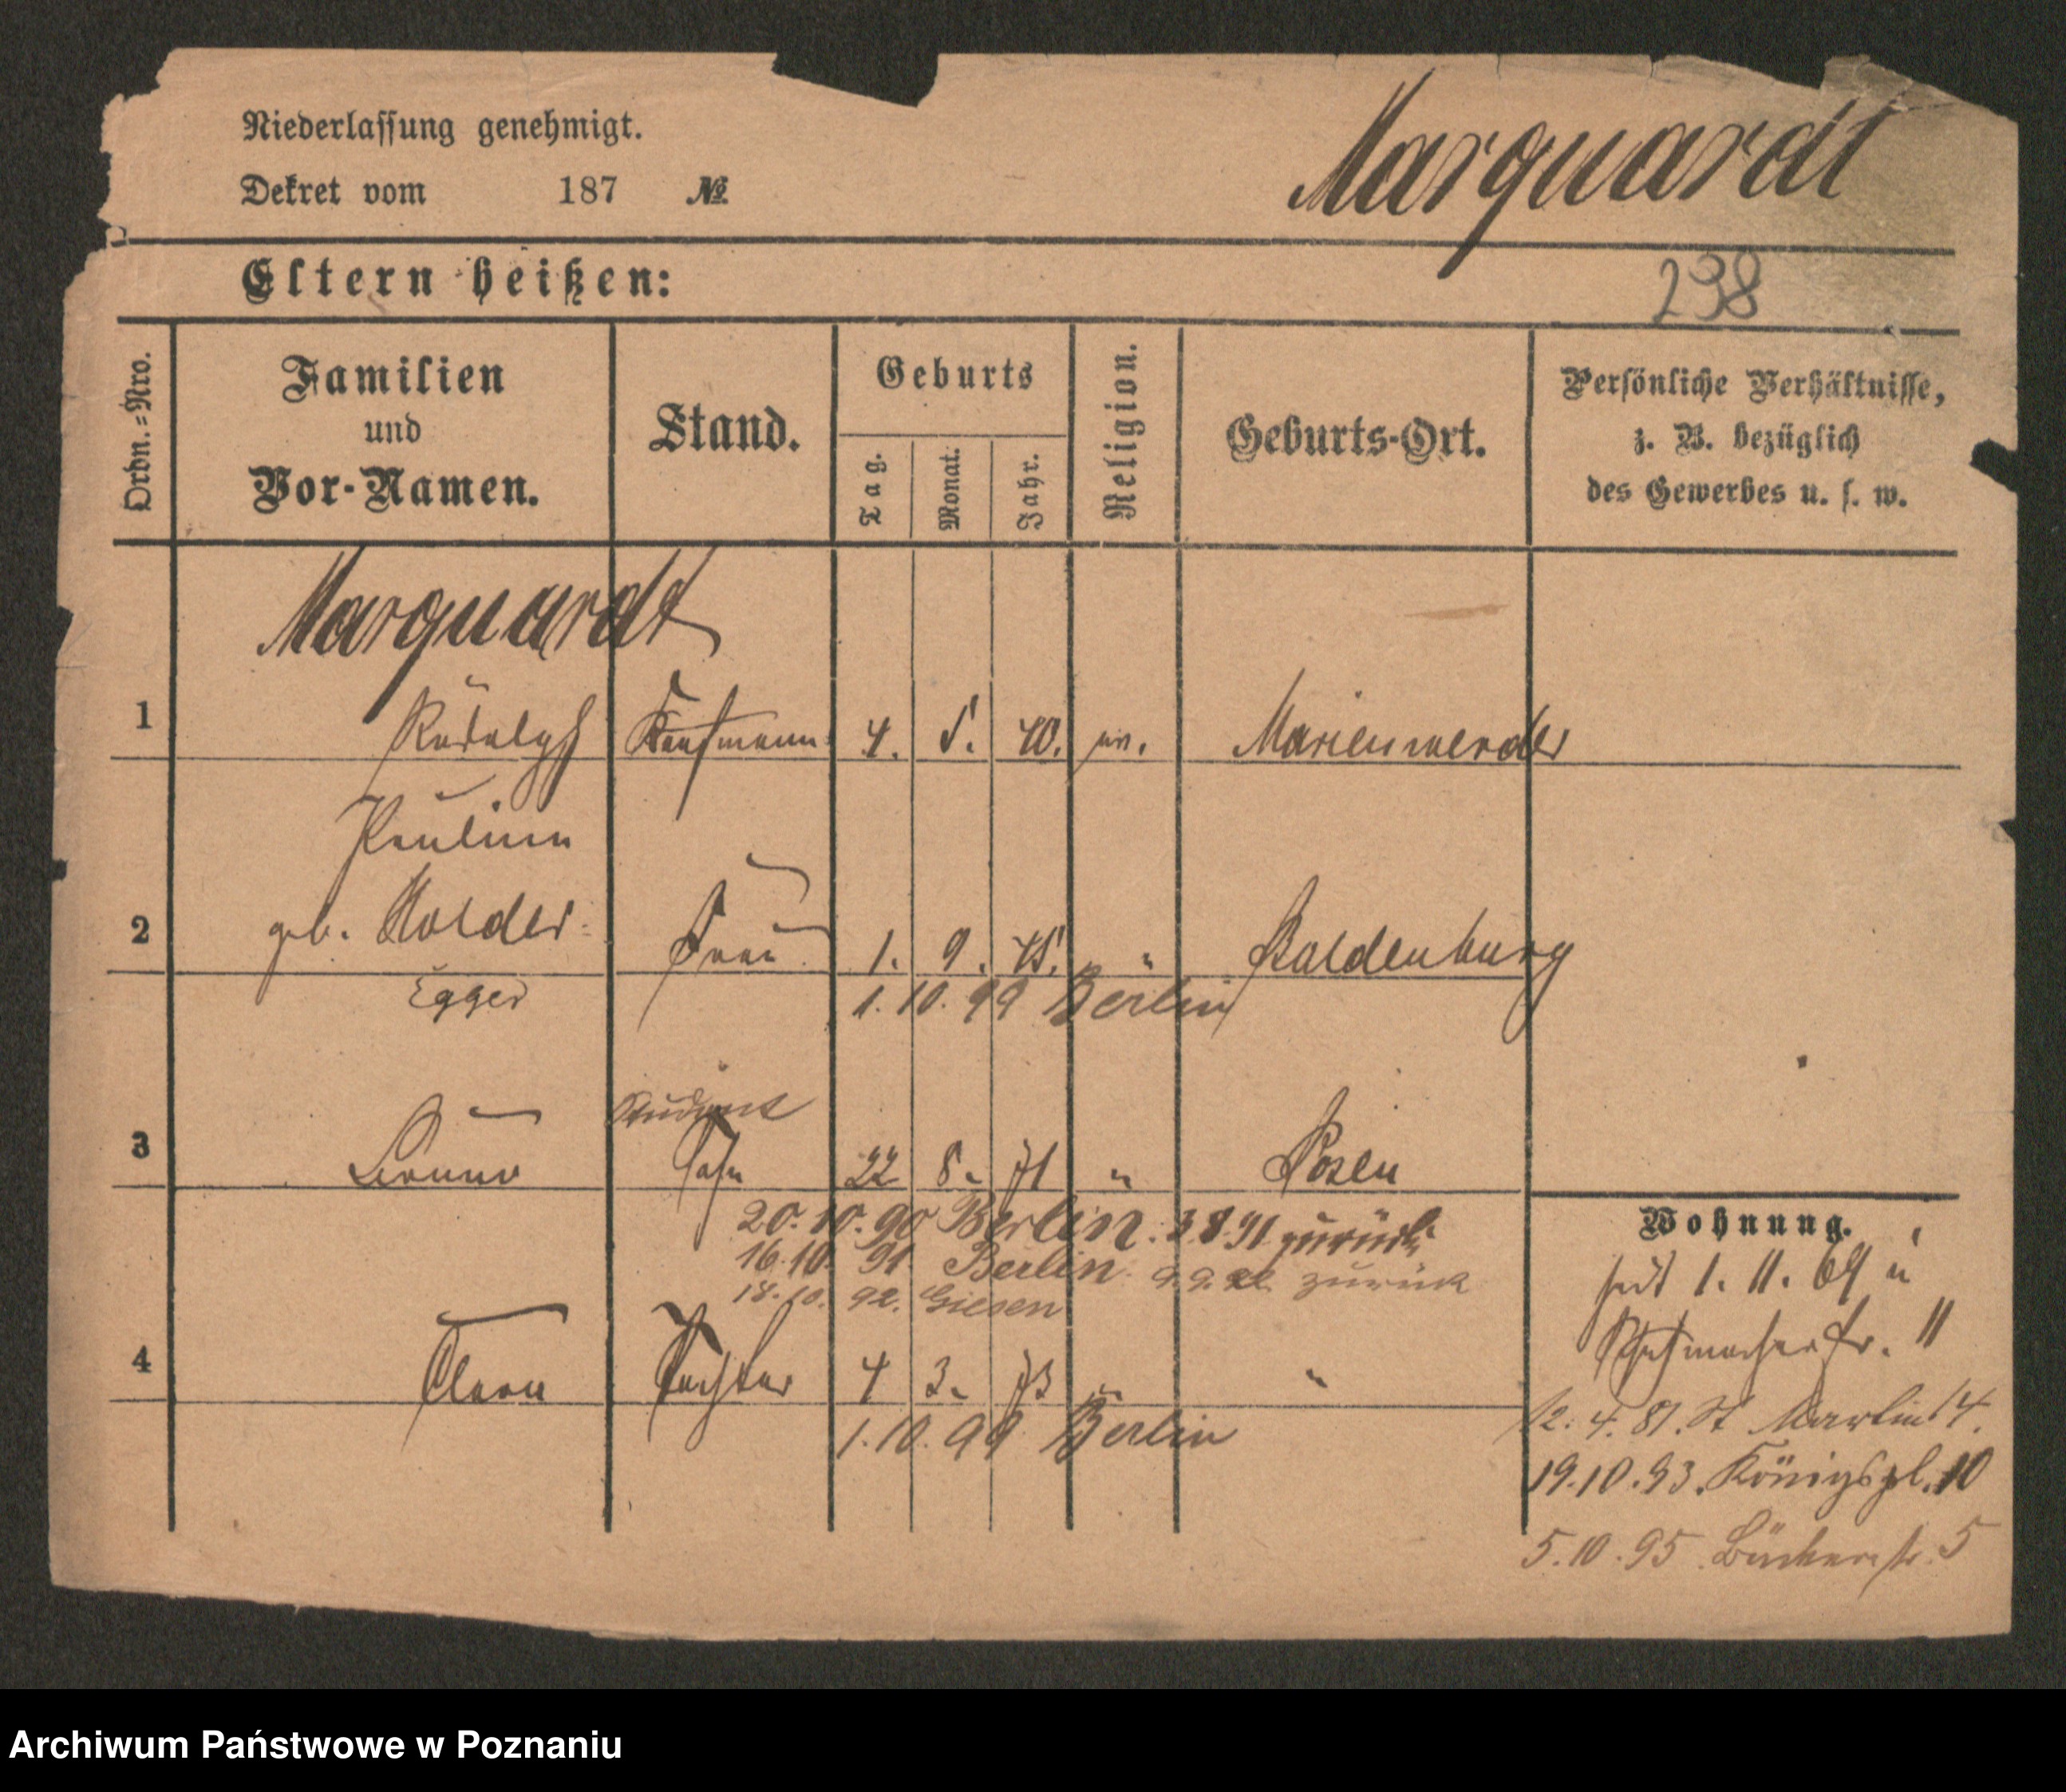 Niederlassung genehmigt.
Dekret vom 187 №
Marquardt
Eltern heißen:
238
Ordn.=Nro.
Familien
und
Vor-Namen.
Stand.
Geburts
Tag.
Monat.
Jahr.
Religion.
Geburts-Ort.
Persönliche Verhältnisse,
z. B. bezüglich
des Gewerbes u. s. w.
Marquardt
1 Rudolph Kaufmann 4. 5. 40. ev. Marienwerder
Pauline
2 geb. Holder- Frau 1. 9. 45. " Baldenburg
Egger 1. 10. 99 Berlin
Student
3 Bruno Sohn 22 8. 71 " Posen
20. 10. 90 Berlin. 3 8 91 zurück
16. 10. 91 Berlin 9. 9. 92 zurück
18. 10. 92. Giesen
4 Clara Tochter 4 3. 73 " "
1. 10. 99 Berlin
Wohnung.
seit 1. 11. 69
Schuhmacherstr. 11
12. 4. 81. St Martin 14.
19. 10. 93. Königspl. 10
5. 10. 95. Bäckerstr. 5
Archiwum Państwowe w Poznaniu